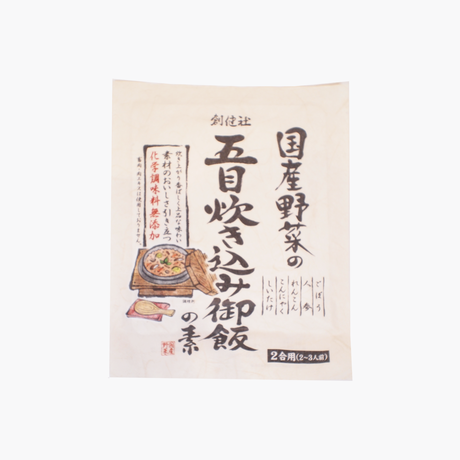 創健社
国産野菜の
五目炊き込み御飯
の素
炊き上がり香ばしく上品な味わい
素材のおいしさ引き立つ
化学調味料無添加
ごぼう
人参
れんこん
こんにゃく
しいたけ
2合用(2~3人前)